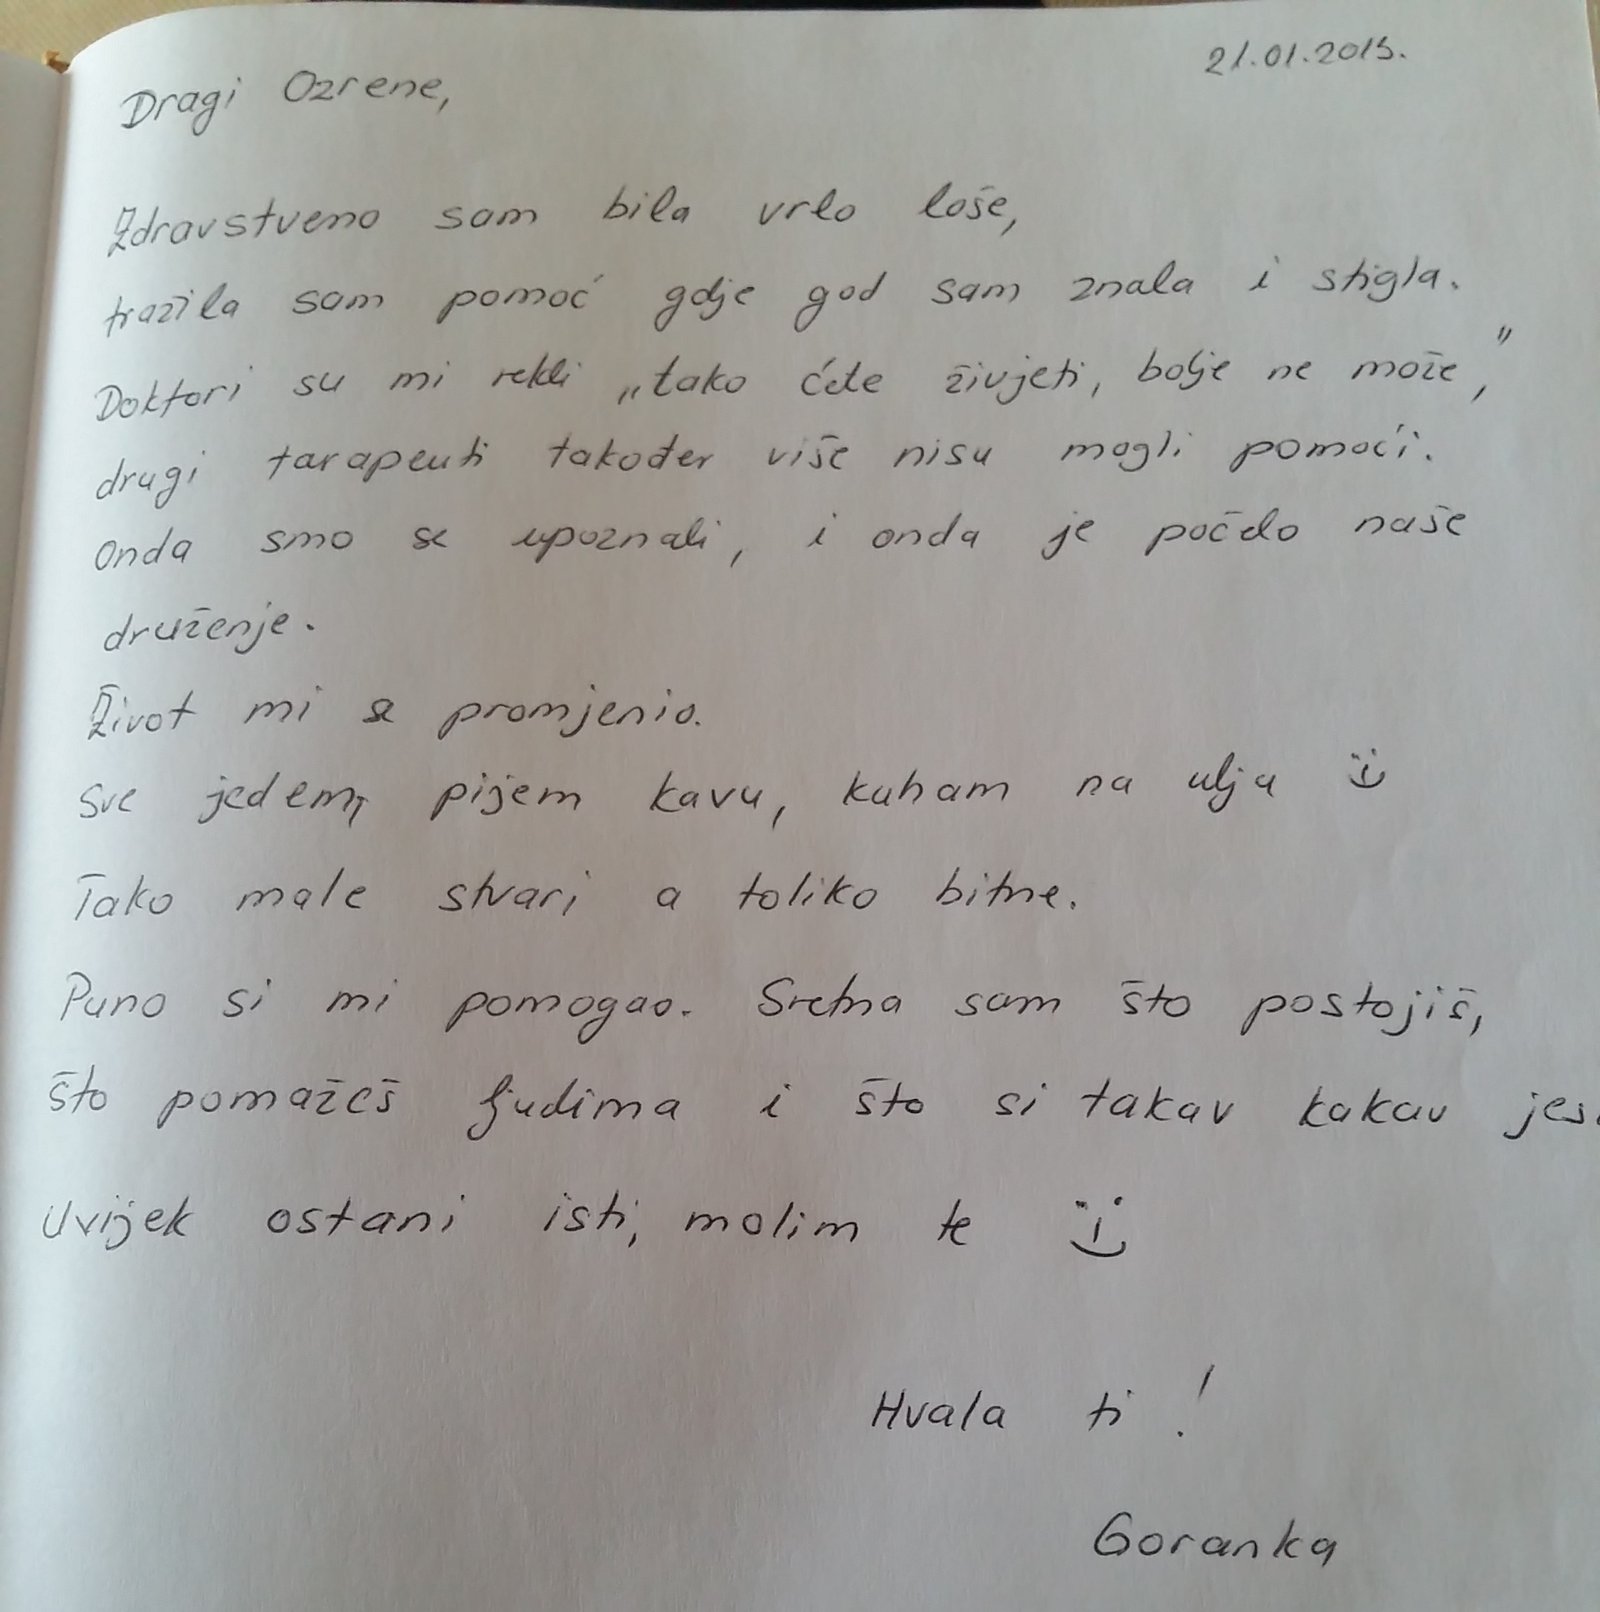 21.01.2015.
Dragi Ozrene,
Zdravstveno sam bila vrlo loše,
tražila sam pomoć gdje god sam znala i stigla.
Doktori su mi rekli „tako ćete živjeti, bolje ne može,”
drugi tarapeuti također više nisu mogli pomoći.
Onda smo se upoznali, i onda je počelo naše
druženje.
Život mi se promjenio.
Sve jedem, pijem kavu, kuham na ulju :)
Tako male stvari a toliko bitne.
Puno si mi pomogao. Sretna sam što postojiš,
što pomažeš ljudima i što si takav kakav
Uvijek ostani isti, molim te :)
Hvala ti !
Goranka